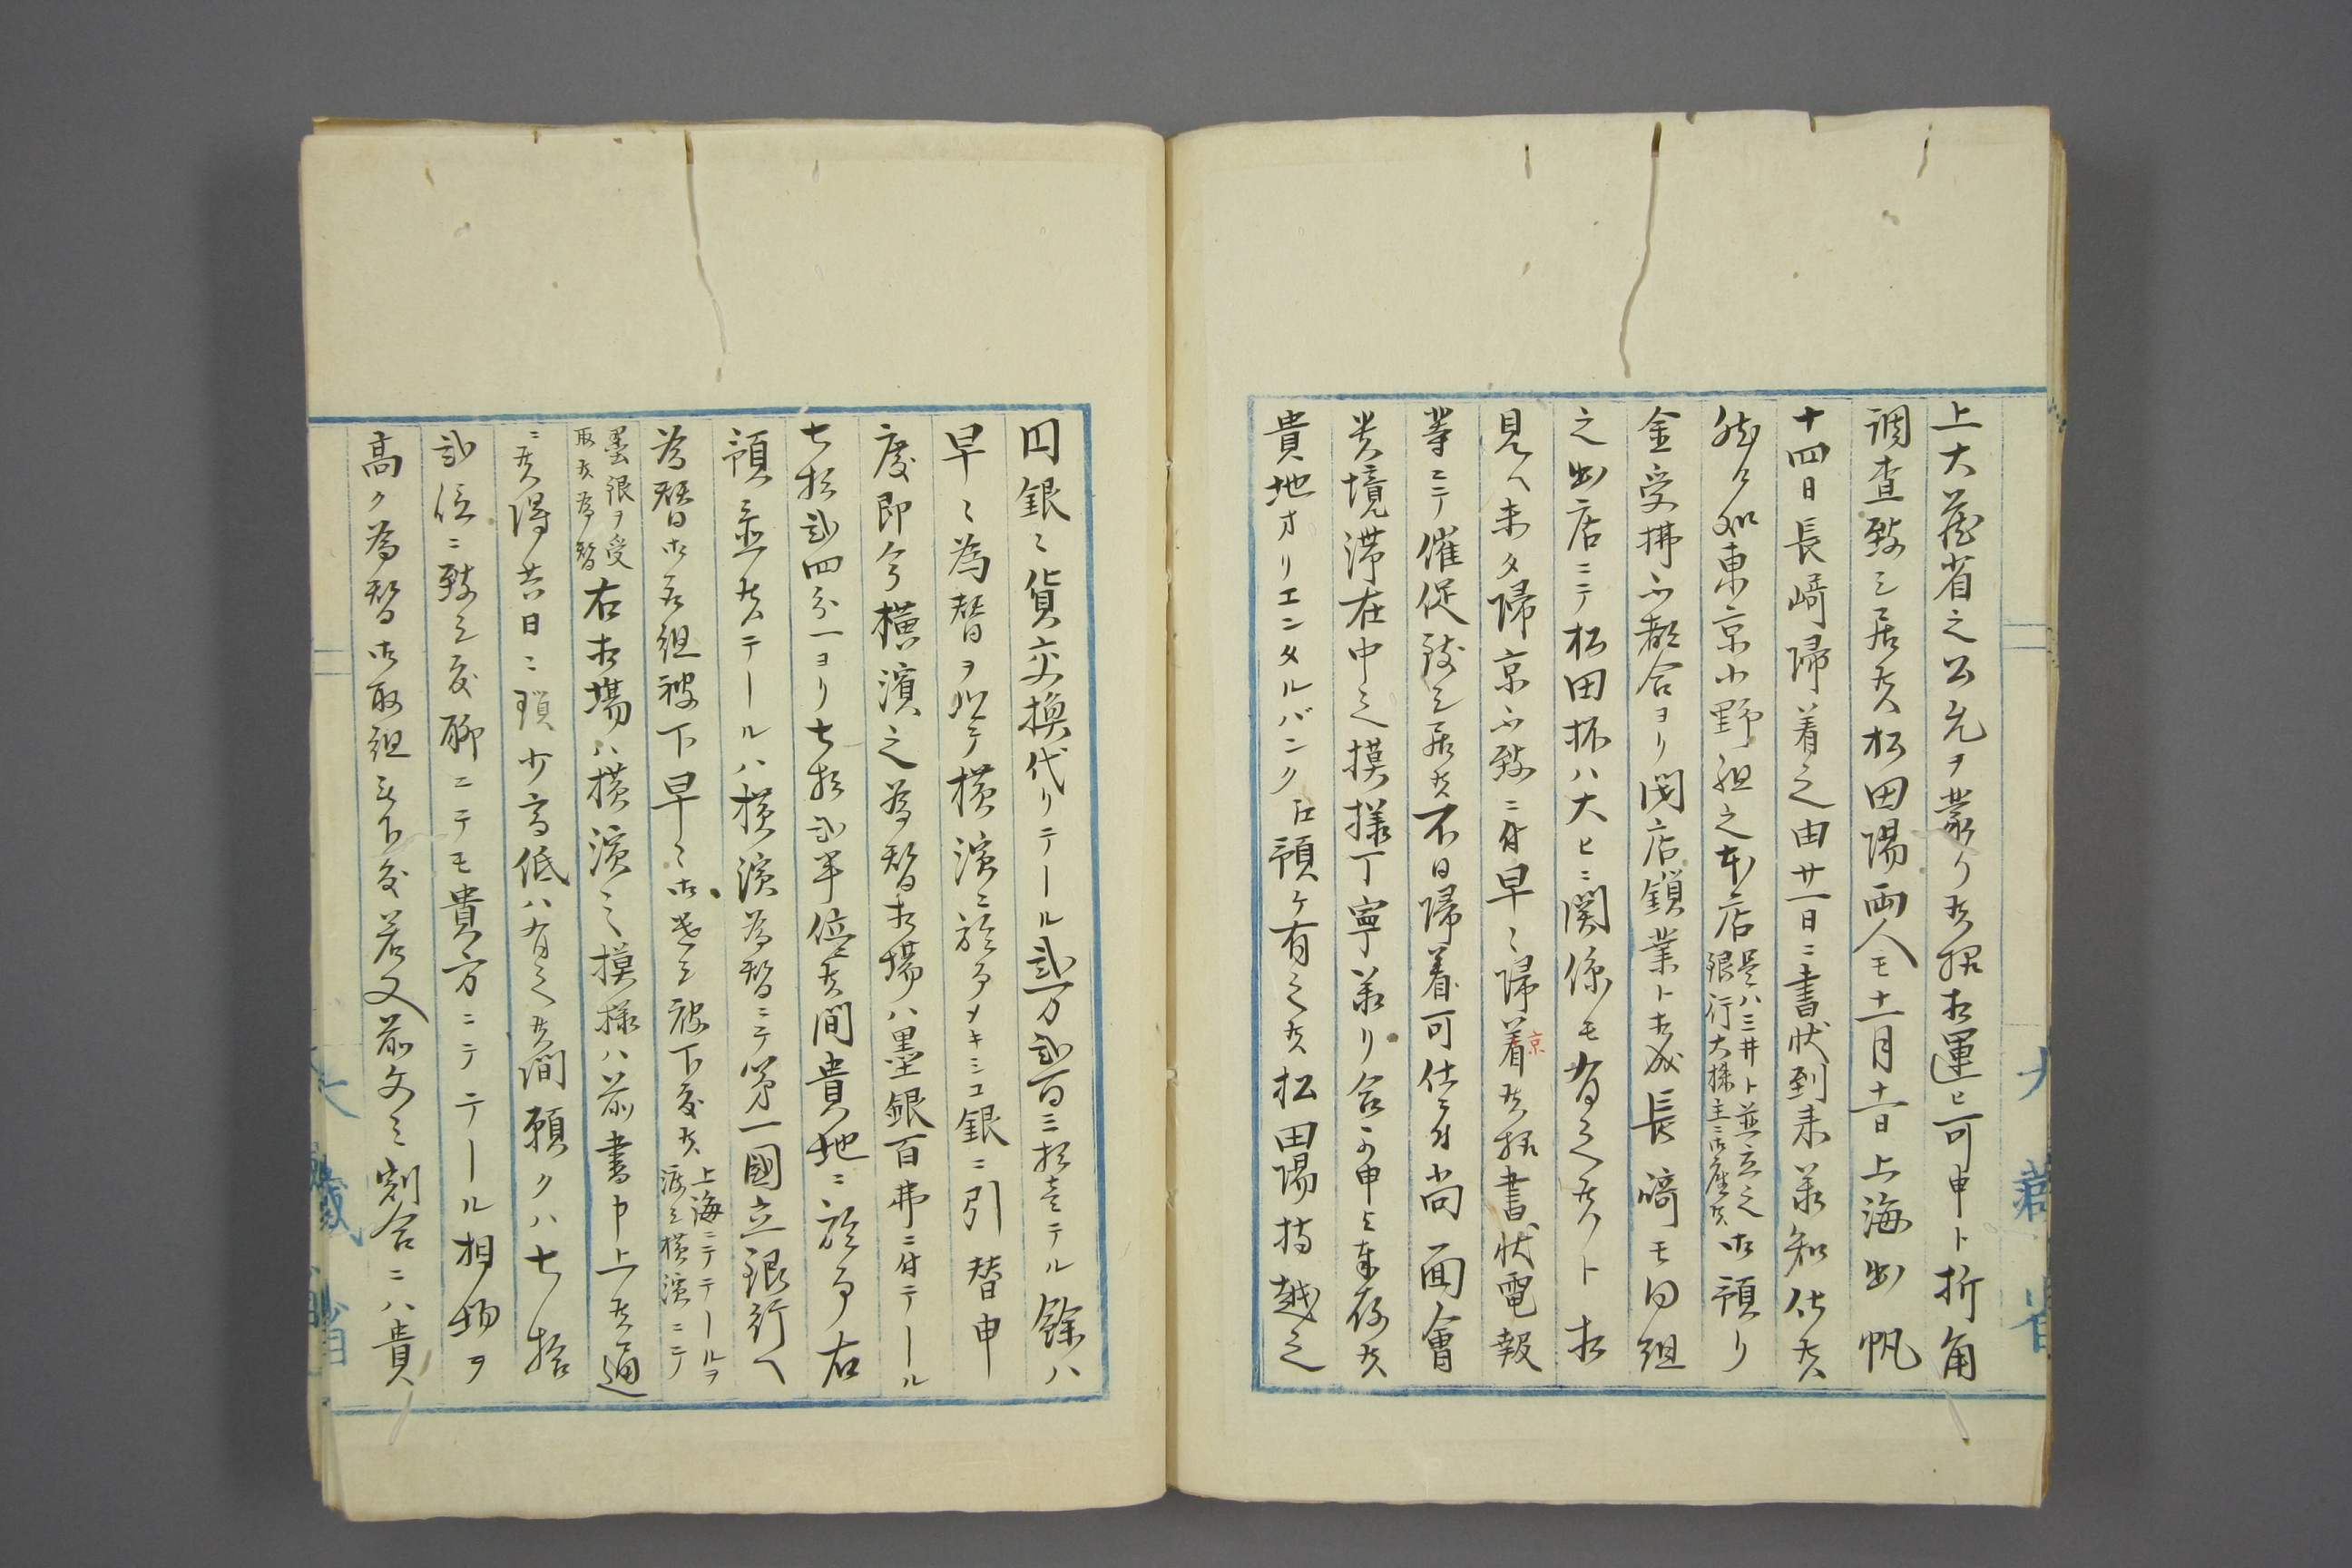 上大蔵省之公允ヲ蒙リ候様相運ヒ可申ト折角
調査致シ居候松田陽両人モ十一月十一日上海出帆
十四日長﨑帰着之由廿一日ニ書状到来承知仕候
然ル処東京小野組之本店是ハ三井ト並立之銀行大株主ニ御座候御預リ
金受拂不都合ヨリ閉店鎖業ト相成長﨑モ同組
之出店ニテ松田抔ハ大ヒニ関係モ有之候ト相
見ヘ未タ帰京不致ニ付早々帰着京候様書状電報
等ニテ催促致シ居候不日帰着可仕ニ付尚面會
貴境滞在中之摸様丁寧承リ合可申ト奉存候
貴地オリエンタルバンクエ預ケ有之候松田陽持越之
円銀々貨交換代リテール弐万弐百三拾壱テル餘ハ
早々為替ヲ以テ横濱ニ於テメキシコ銀ニ引替申
度即今横濱之為替相場ハ墨銀百弗ニ付テール
七拾弐四分一ヨリ七拾弐半位候間貴地ニ於テ右
預ヶ置候テールハ横濱為替ニテ第一國立銀行ヘ
為替御取組被下早々御送シ被下度候上海ニテテールヲ渡シ横濱ニテ
墨銀ヲ受取候為替右相場ハ横濱之摸様ハ前書申上候通
ニ候得共日々瑣少高低ハ有之候間願クハ七拾
弐位ニ致シ度聊ニテモ貴方ニテテール相場ヲ
高ク為替御取組被下度若又前文之割合ニハ貴
大藏省
大藏省